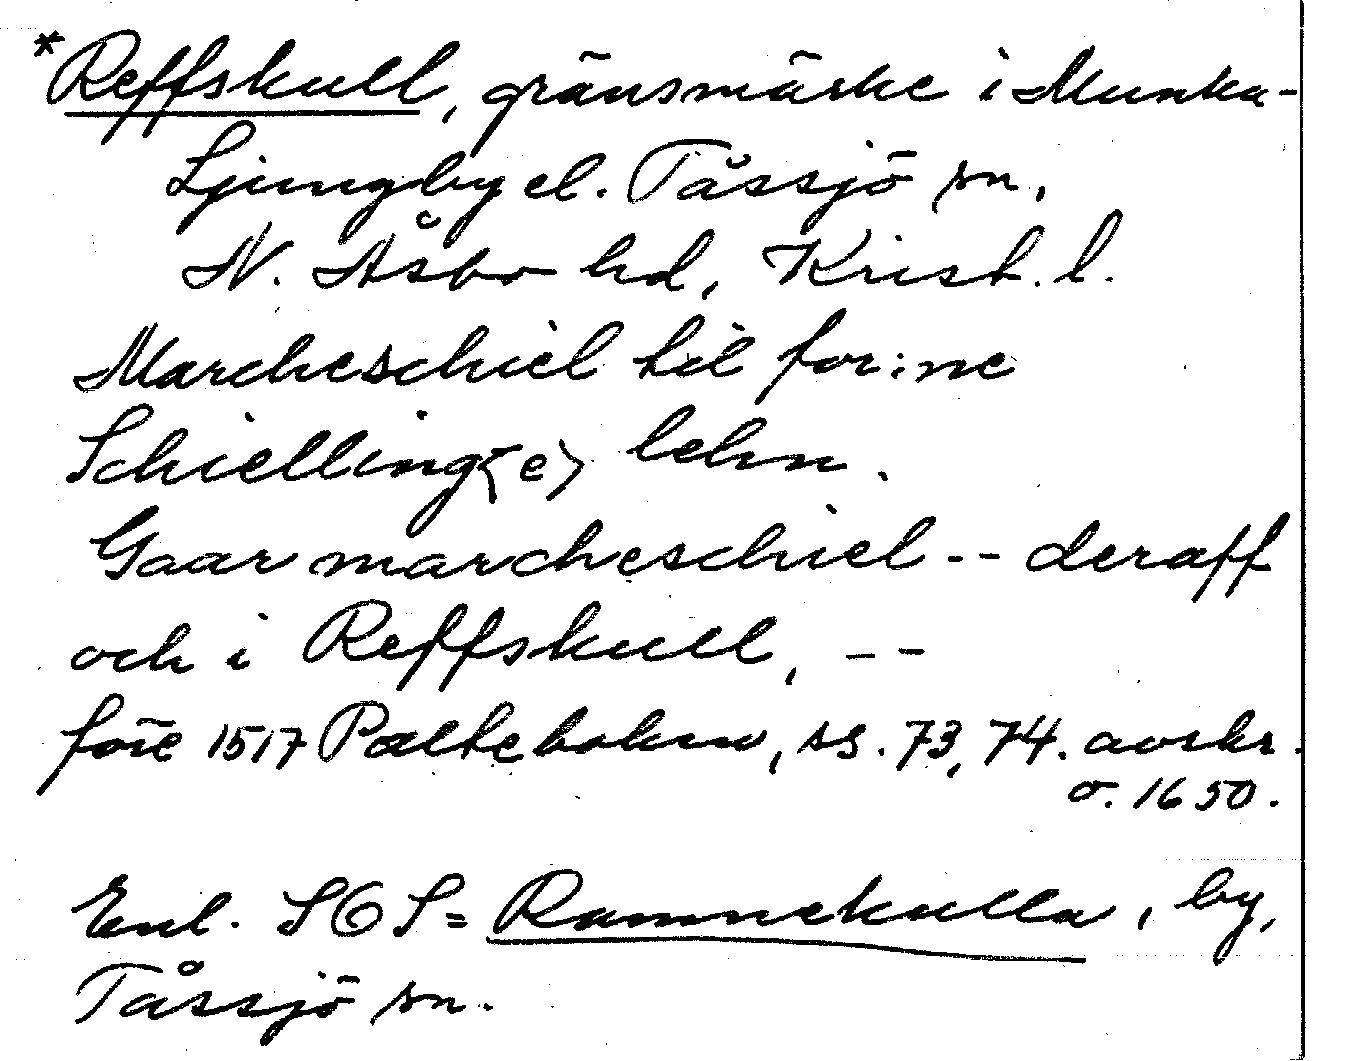 *Reffskull, gränsmärke i Munka-
Ljungby el. Tåssjö sn,
N. Åsbo hd, Krist. l.
Marcheschiel til for:ne
Schielling<e> lehn.
Gaar marcheschiel -- deraff
och i Reffskull, --
före 1517 Pælteboken, ss. 73, 74. avskr.
o. 1650.
Enl. SOS = Rammekulla, by,
Tåssjö sn.